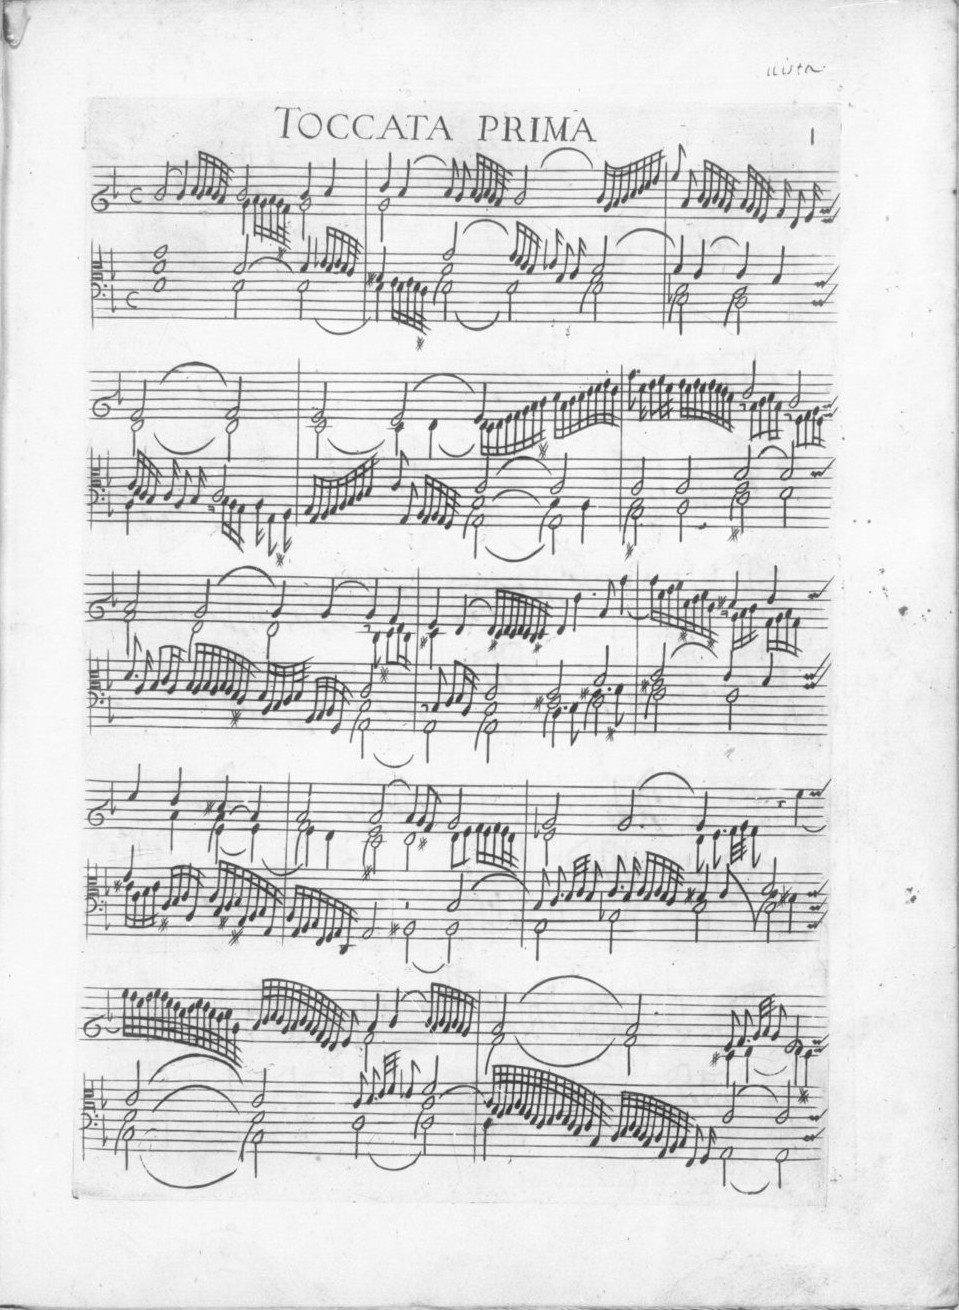 uista
TOCCATA PRIMA
1